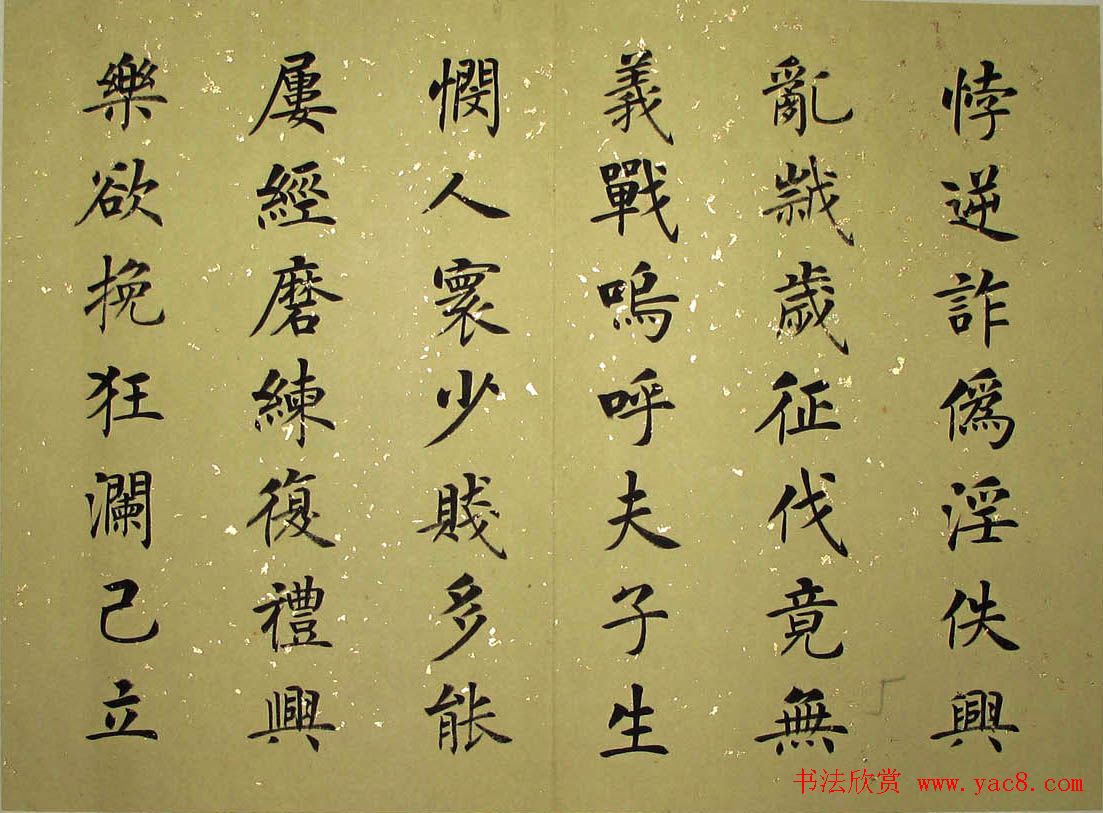 悖逆詐僞淫佚興
亂歲征伐竟無
義戰嗚呼夫子生
憫人寰少賤多能
屢經磨練復禮興
樂欲挽狂瀾己立
书法欣赏 www.yac8.com